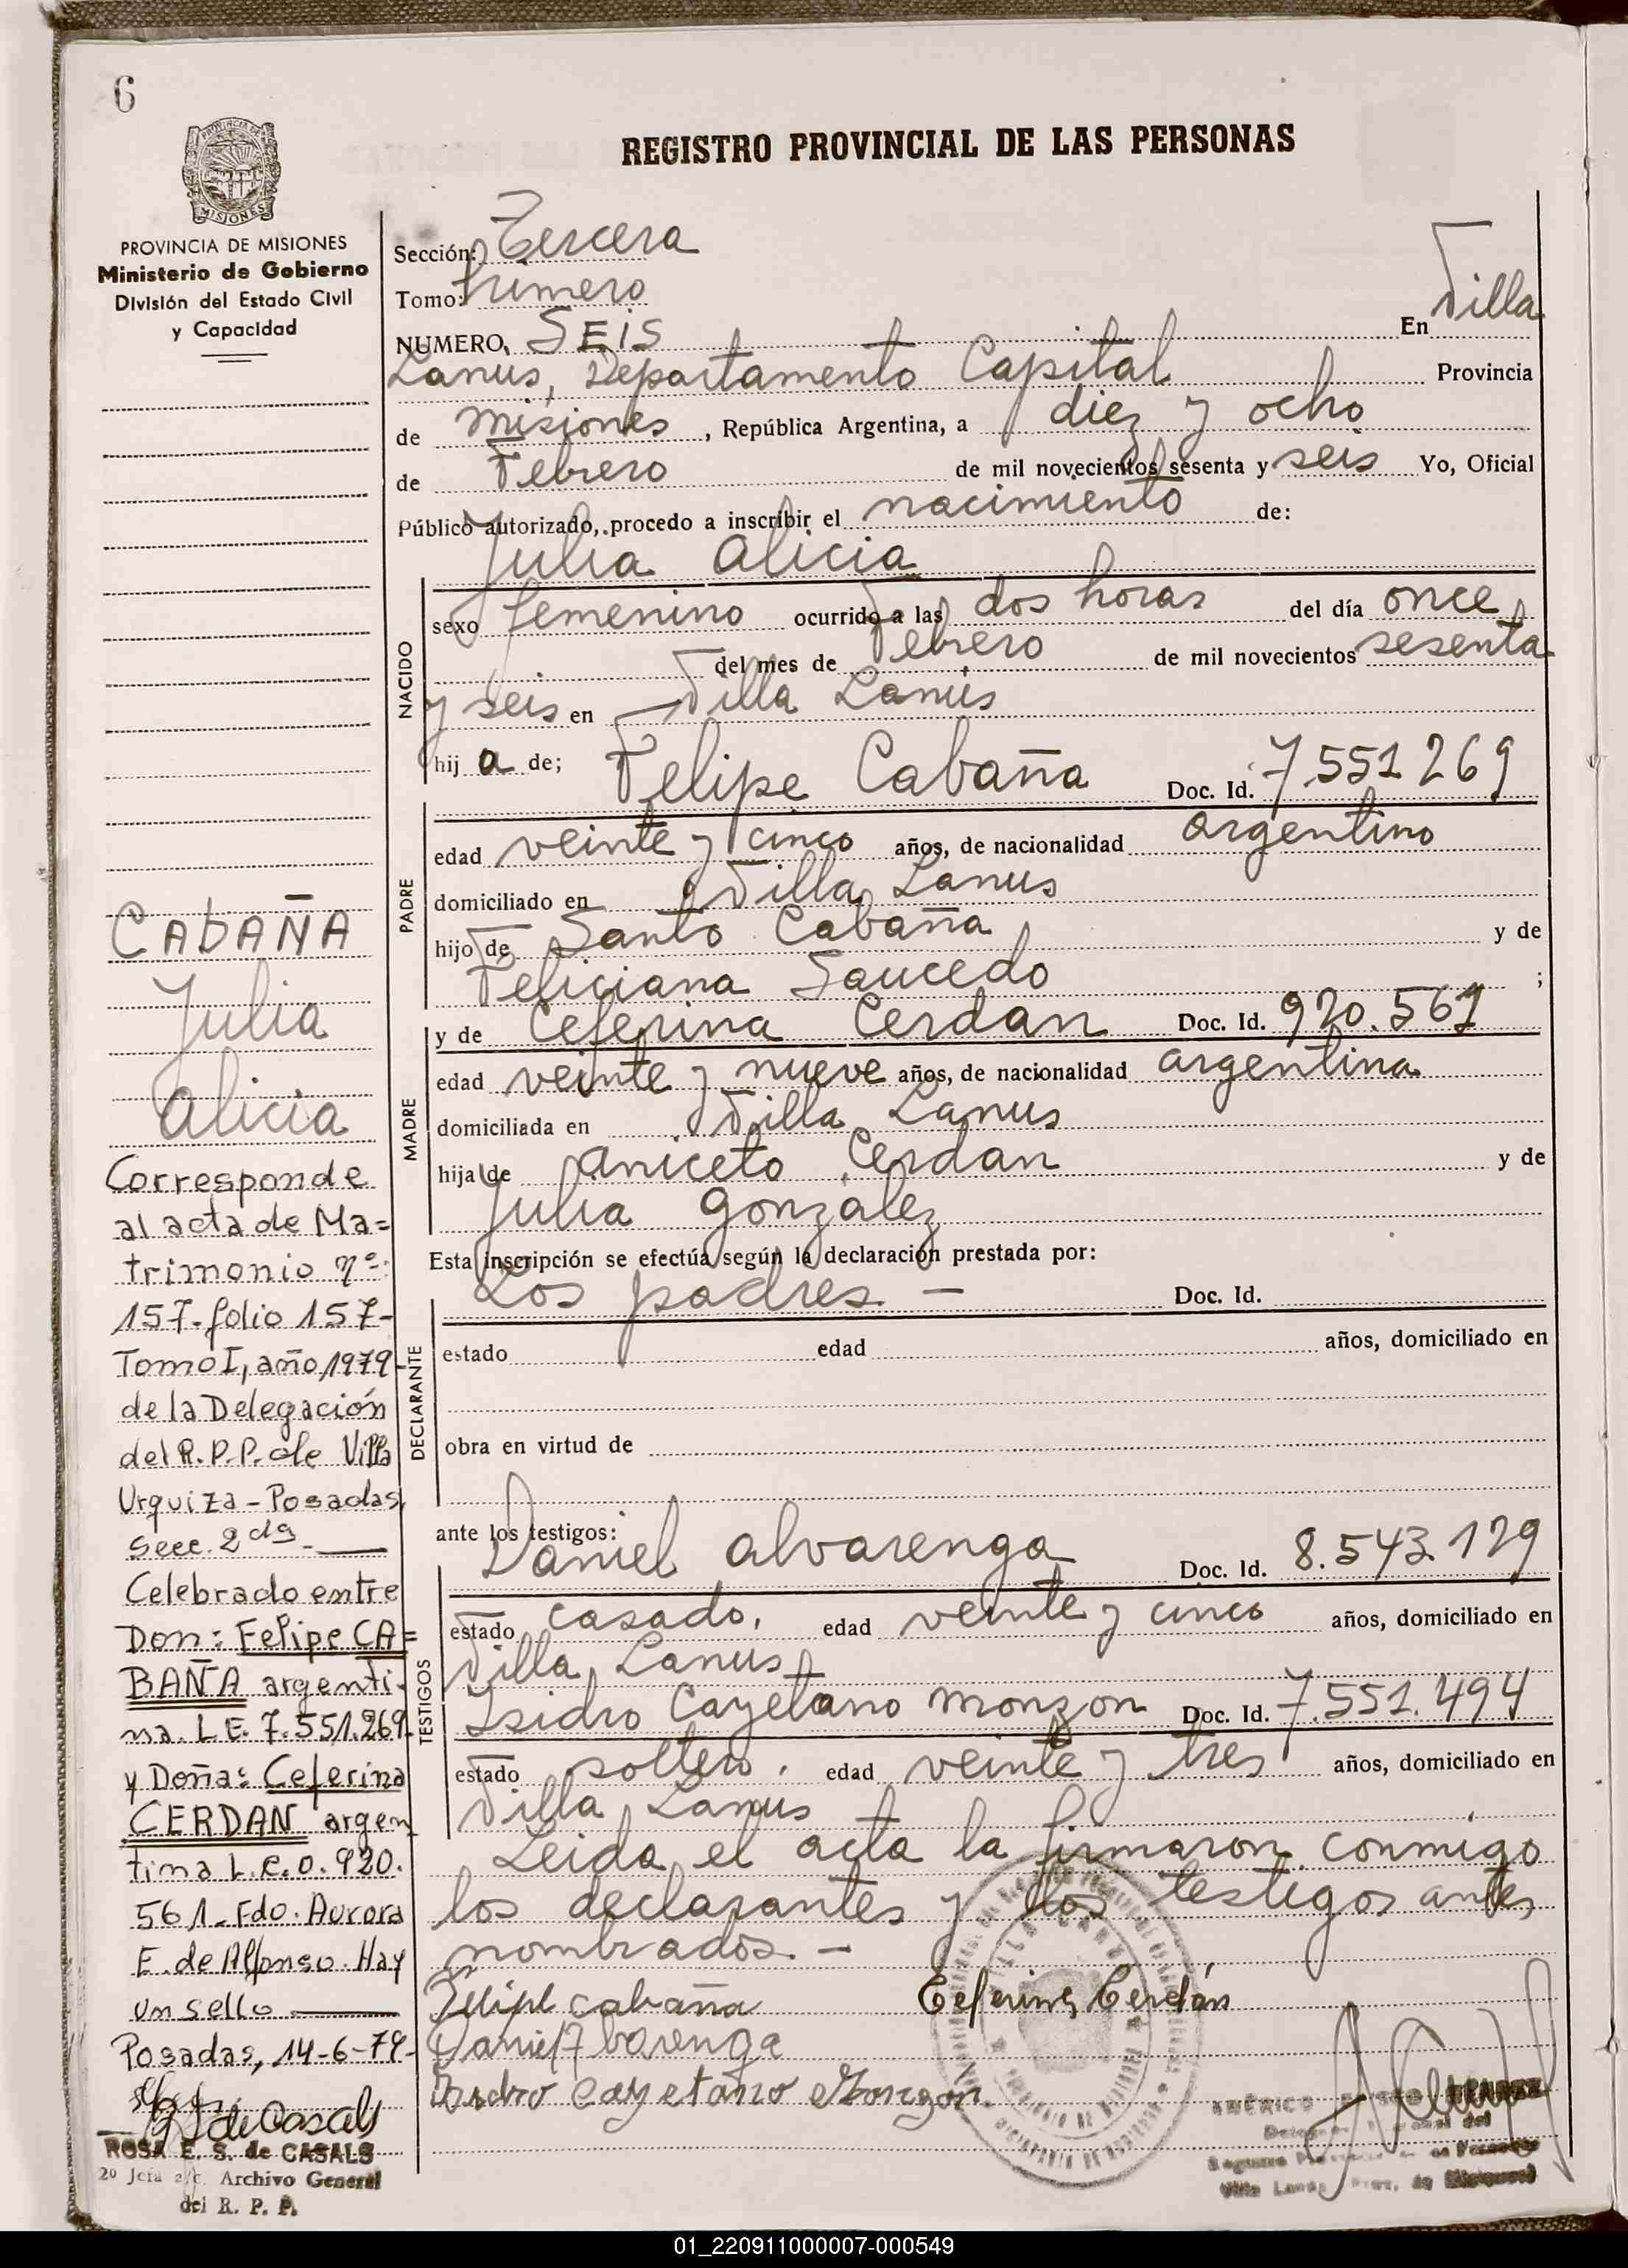 6
REGISTRO PROVINCIAL DE LAS PERSONAS
PROVINCIA DE MISIONES
MISIONES
PROVINCIA DE MISIONES
Ministerio de Gobierno
División del Estado Civil
y Capacidad
CAbAÑA
Julia
Alicia
Corresponde
al acta de Ma=
trimonio nº:
157-folio 157-
Tomo I, año 1979-
de la Delegación
del R.P.P. de Villa
Urquiza - Posadas,
Secc. 2da -
Celebrado entre
Don: Felipe CA=
BAÑA argenti-
na. L.E. 7.551.269-
y Doña: Ceferina
CERDAN argen
tina L.C. 0.920.
561- Fdo. Aurora
E. de Alfonso. Hay
un sello
Posadas, 14-6-79-
de Casals
ROSA E. S. de CASALS
2º Jefa a/c. Archivo General
del R. P. P.
Sección: Tercera
Tomo: Primero
NUMERO, SEIS En Villa
Lanus, Departamento Capital Provincia
de Misiones , República Argentina, a diez y ocho
de Febrero de mil novecientos sesenta y seis Yo, Oficial
Público autorizado, procedo a inscribir el nacimiento de:
Julia Alicia
NACIDO
sexo femenino ocurrido a las dos horas del día once
del mes de Febrero de mil novecientos sesenta
y seis en Villa Lanús
hij a de; Felipe Cabaña Doc. Id. 7.551269
PADRE
edad veinte y cinco años, de nacionalidad argentino
domiciliado en Villa Lanus
hijo de Santo Cabaña y de
Feliciana Saucedo ;
y de Ceferina Cerdan Doc. Id. 920.561
MADRE
edad veinte y nueve años, de nacionalidad argentina
domiciliada en Villa Lanus
hija de Aniceto Cerdan y de
Julia Gonzalez
Esta inscripción se efectúa según la declaración prestada por:
Los padres - Doc. Id.
DECLARANTE
estado edad años, domiciliado en
obra en virtud de
ante los testigos:
Daniel Alvarenga Doc. Id. 8.543.129
TESTIGOS
estado casado. edad veinte y cinco años, domiciliado en
Villa Lanus
Isidro Cayetano Monzon Doc. Id. 7.551.494
estado soltero. edad veinte y tres años, domiciliado en
Villa Lanus
Leida el acta la firmaron conmigo
los declarantes y los testigos antes
nombrados. -
Felipe Cabaña Ceferina Cerdán
Daniel Albarenga
Isidro Cayetano Monzon.
01_220911000007-000549